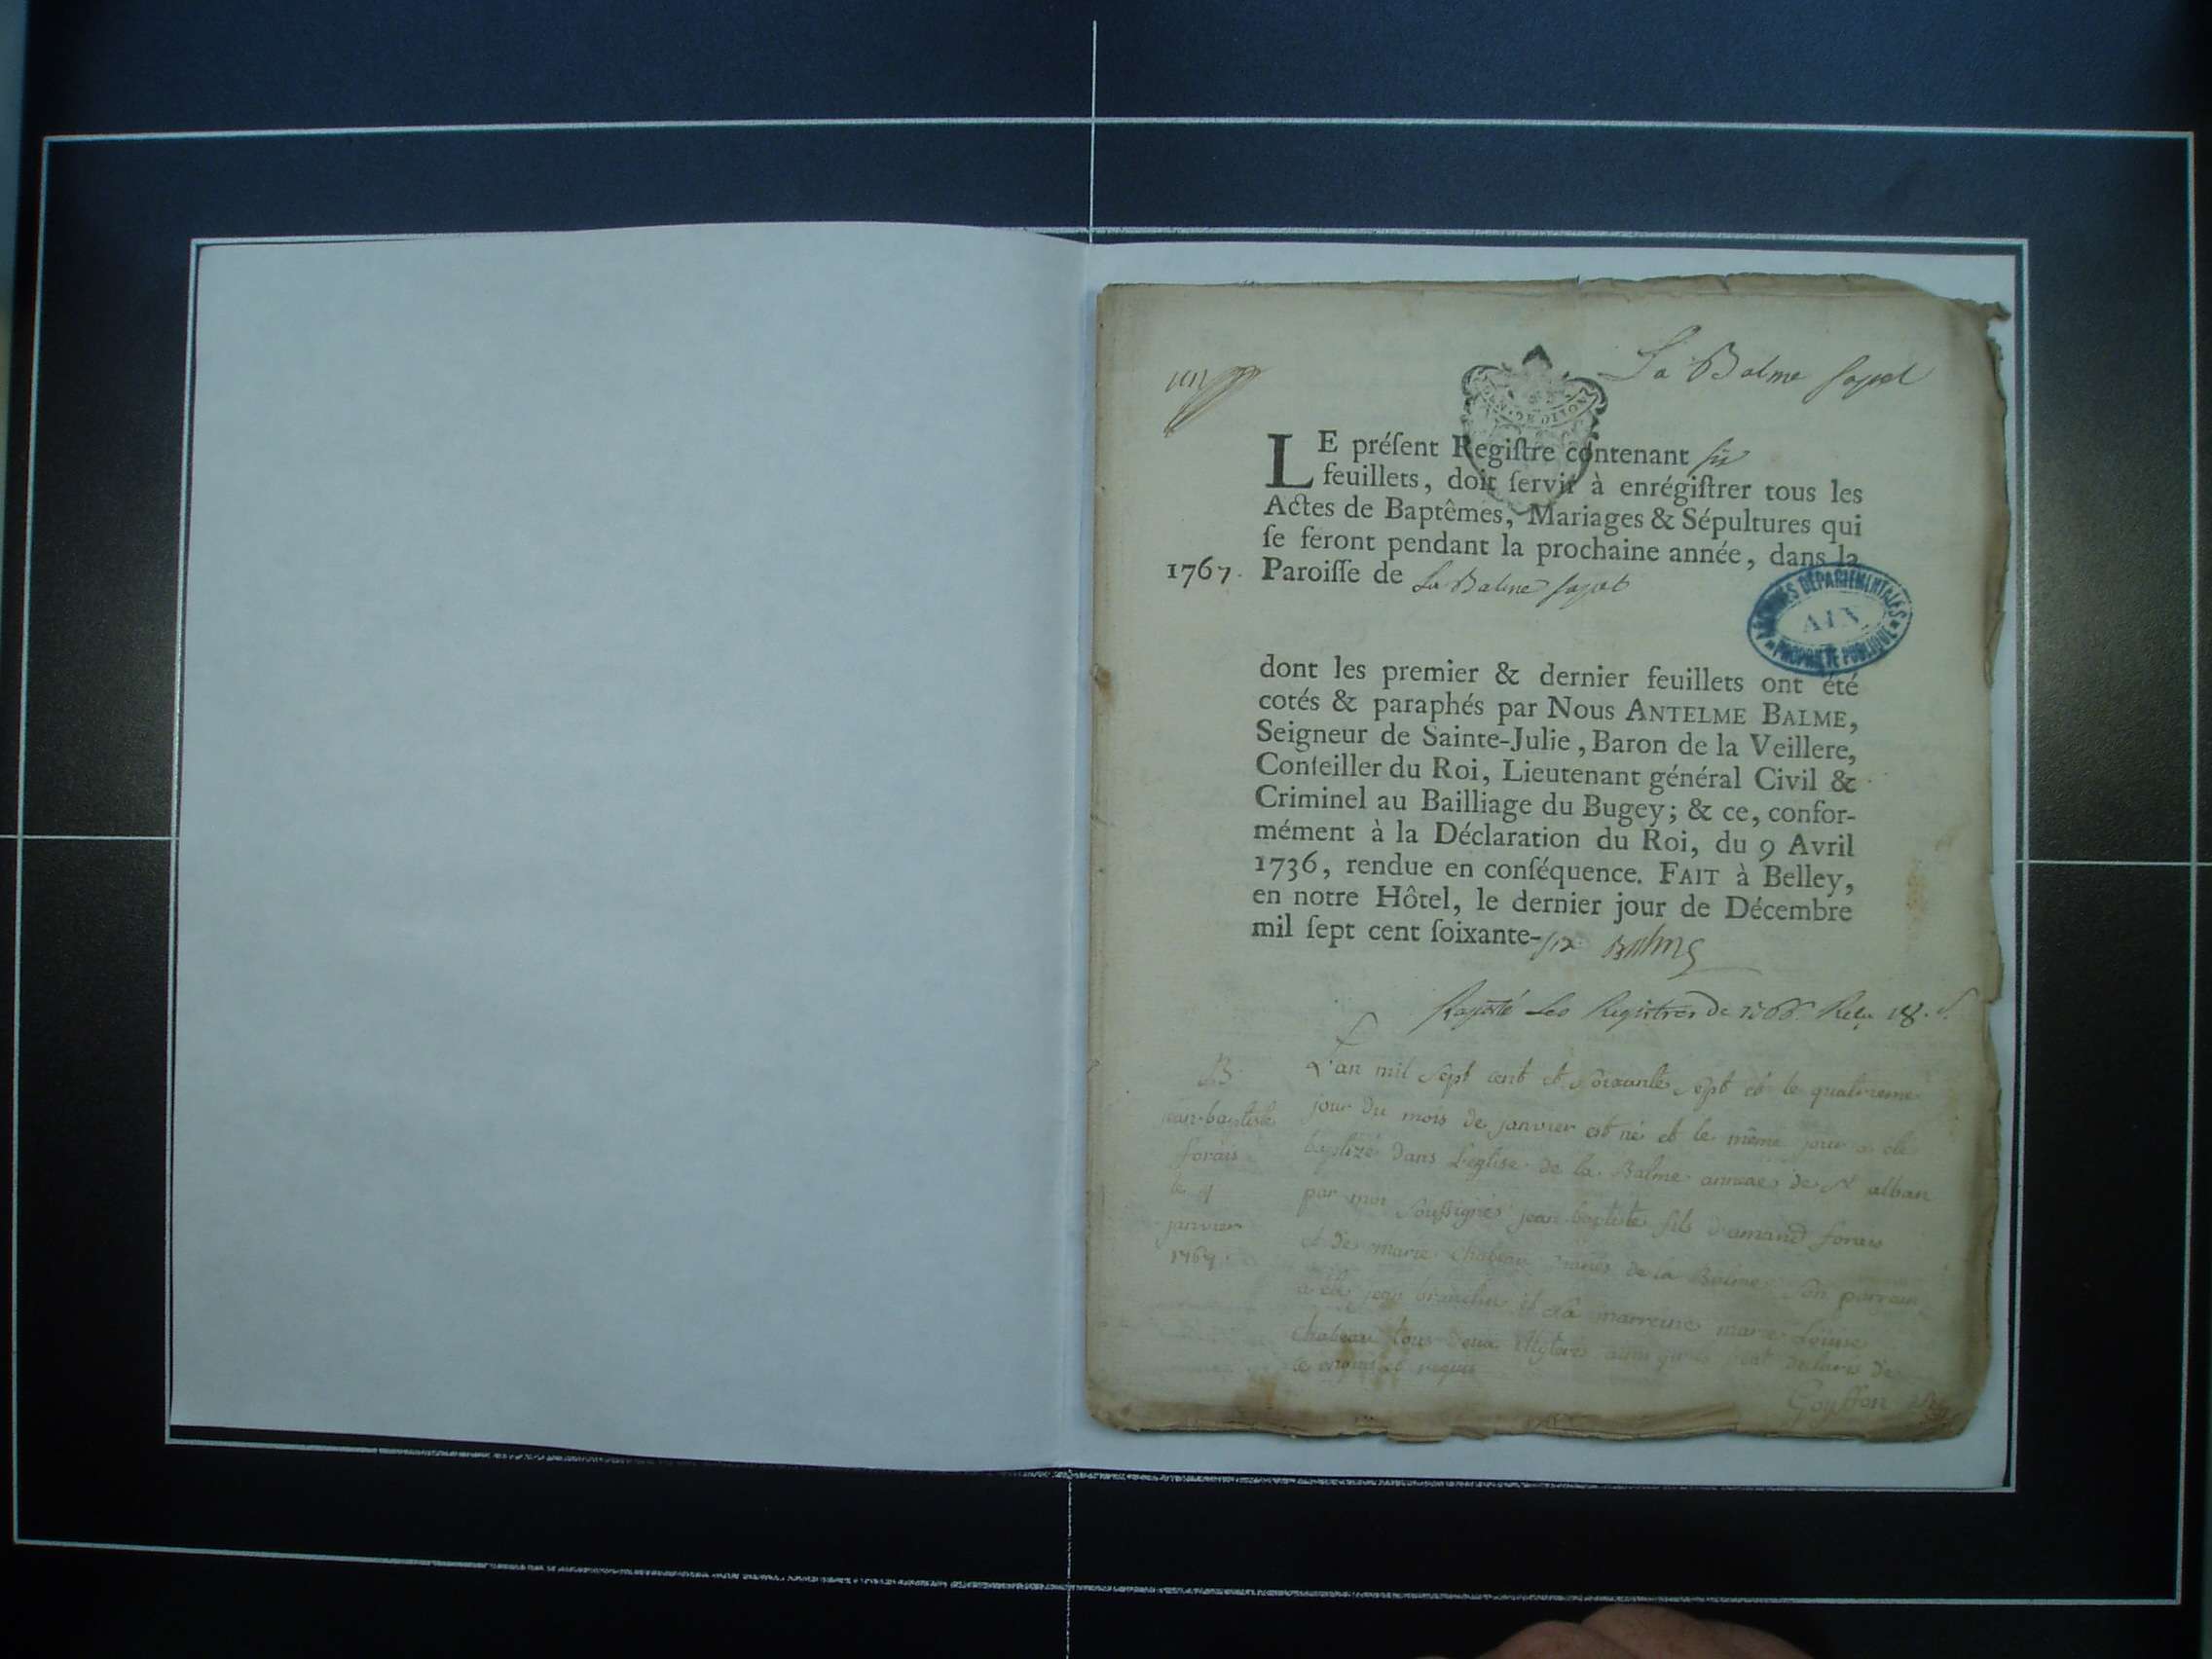 La Balme sapel
GEN. DE DIJON
LE préſent Regiſtre contenant six
feuillets, doit ſervir à enrégiſtrer tous les
Actes de Baptêmes, Mariages & Sépultures qui
ſe feront pendant la prochaine année, dans la
1767. Paroiſſe de La Balme sapel
ARCHIVES DÉPARTEMENTALES
AIN
PROPRIÉTÉ PUBLIQUE
dont les premier & dernier feuillets ont été
cotés & paraphés par Nous ANTELME BALME,
Seigneur de Sainte-Julie, Baron de la Veillere,
Conſeiller du Roi, Lieutenant général Civil &
Criminel au Bailliage du Bugey; & ce, confor-
mément à la Déclaration du Roi, du 9 Avril
1736, rendue en conſéquence. FAIT à Belley,
en notre Hôtel, le dernier jour de Décembre
mil ſept cent ſoixante-six Balme
les Registres de 1766. 18. s.
B
jean-baptiste
forais
le 4
janvier
1767.
L'an mil sept cent et soixante sept et le quatrieme
jour du mois de janvier est né et le même jour a eté
baptizé dans l'eglise de la Balme annexe de st alban
par moi soussigné jean baptiste fils d'amand forais
et de marie chabeau mariés de la Balme son parrain
a été jean et sa marreine marie Loüise
chabeau tous deux declaré de
ce enquis et requis
Goyffon